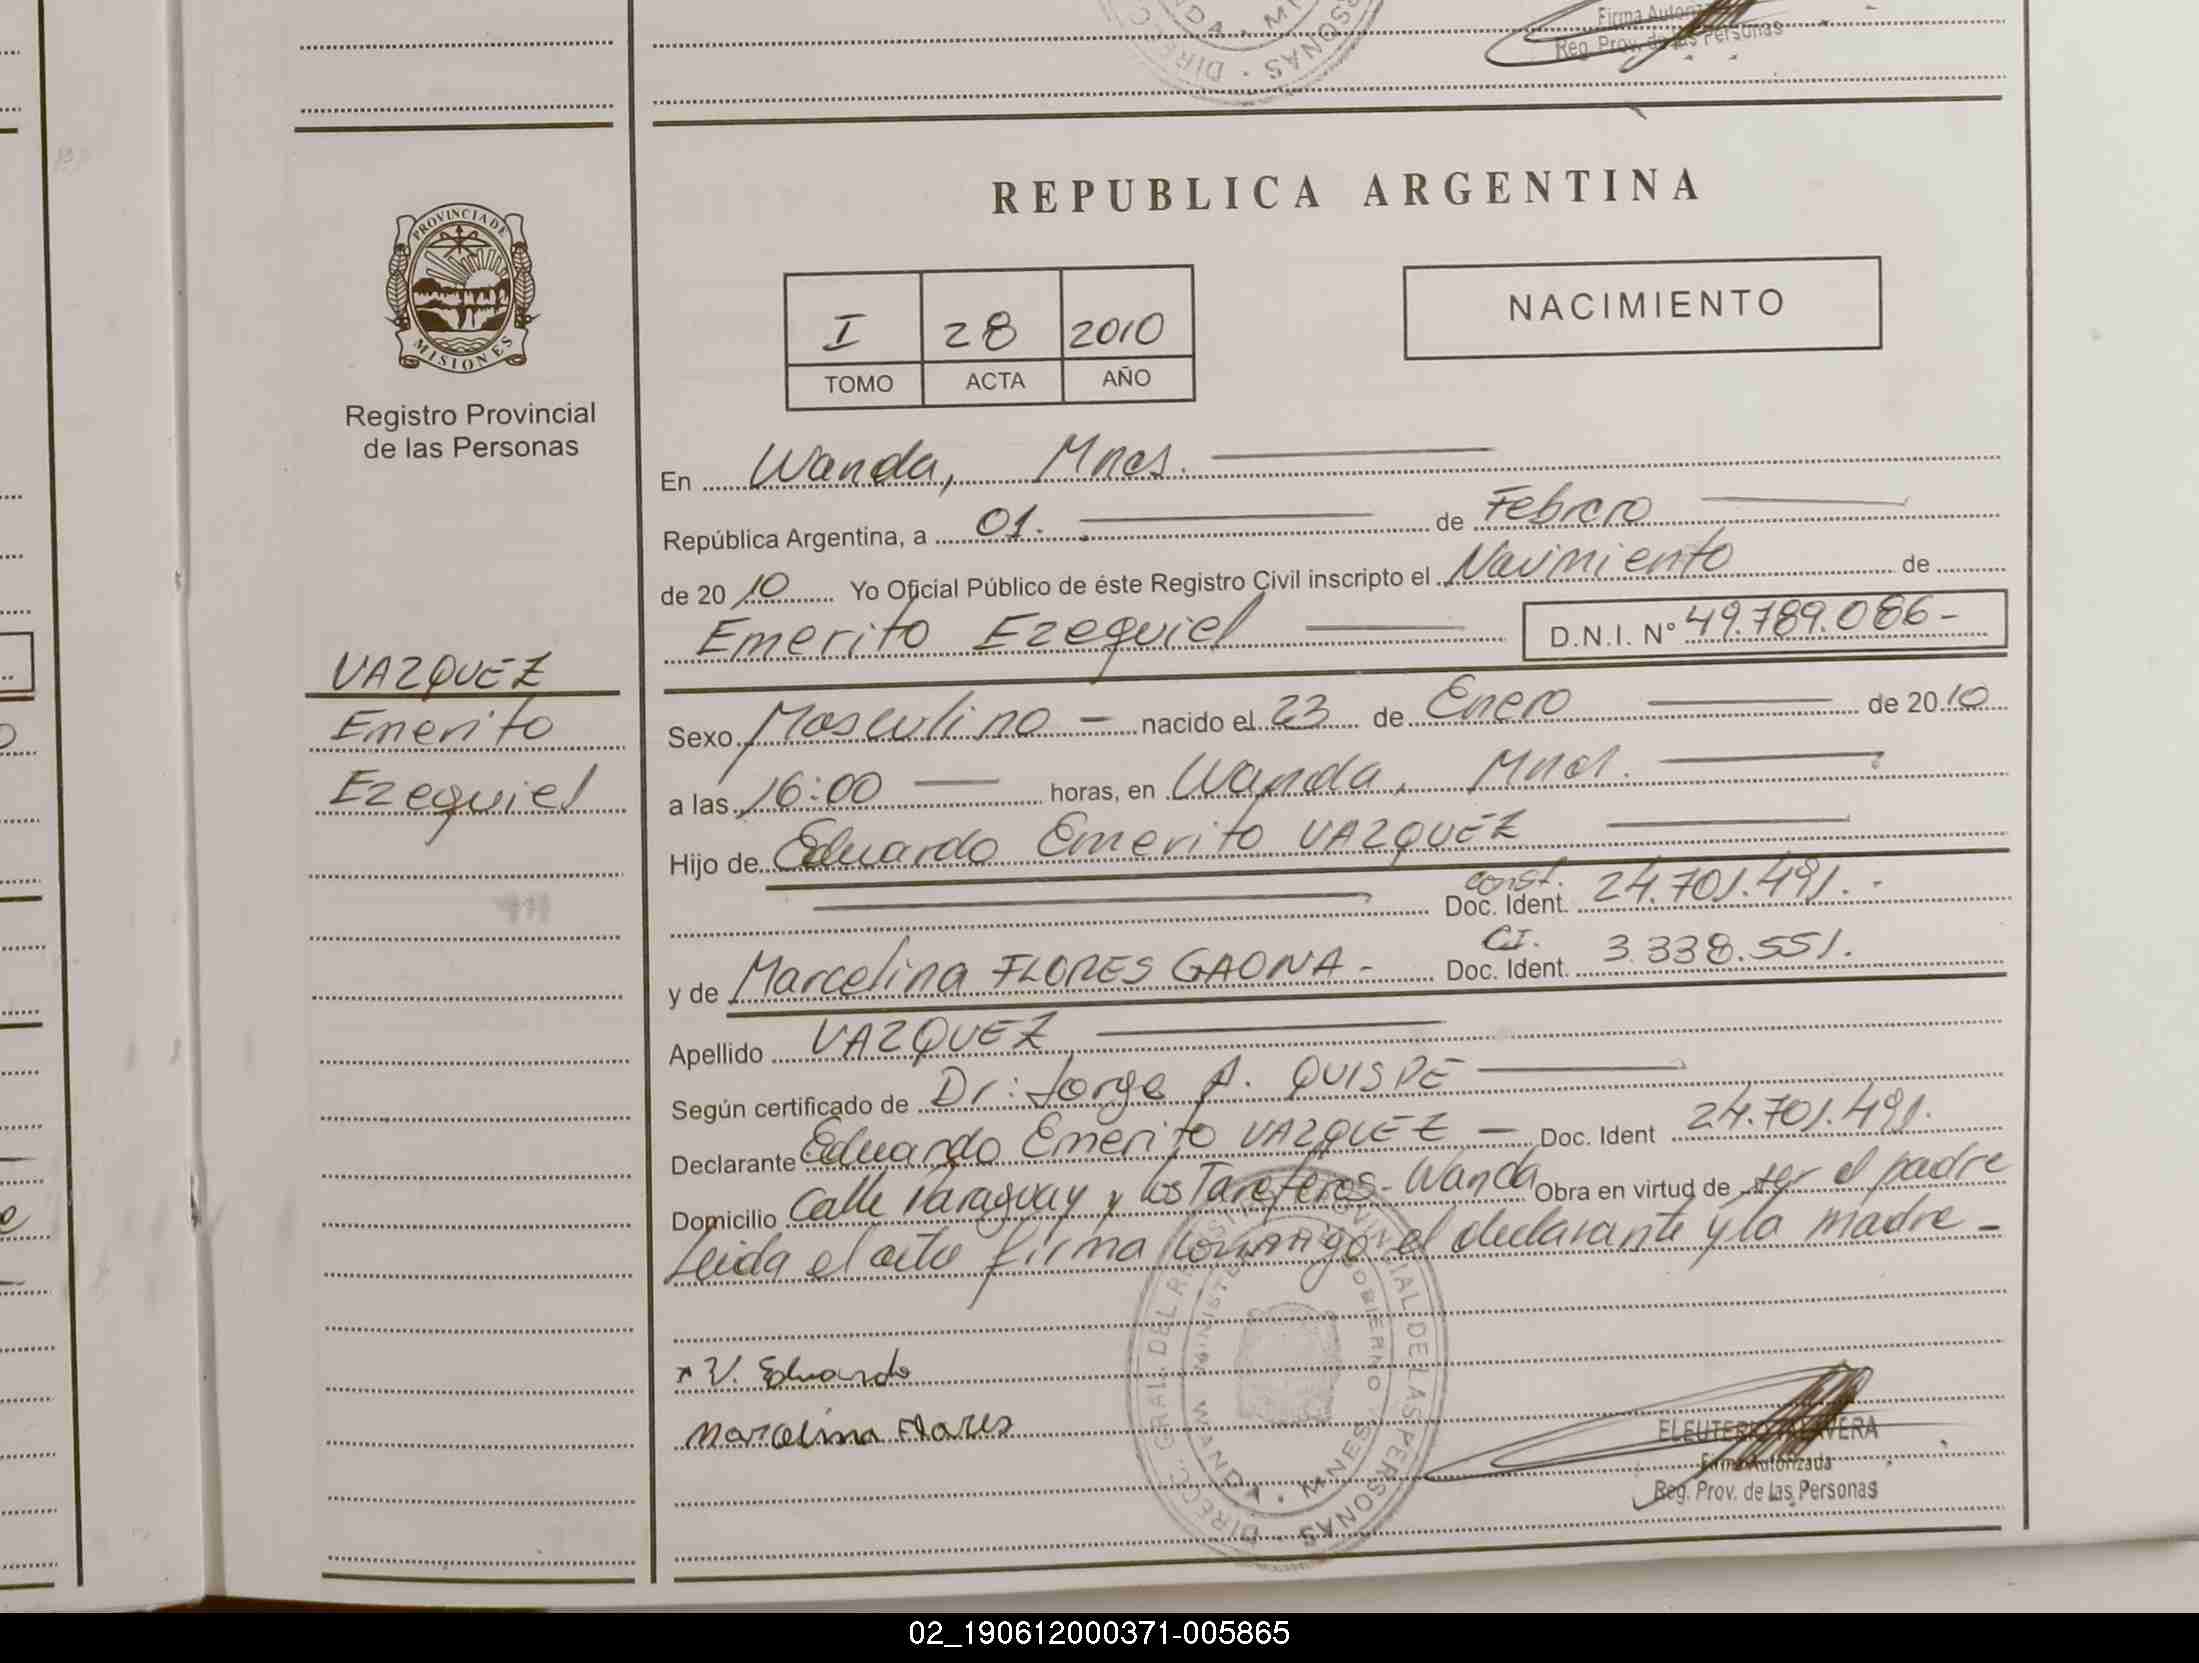 Firma Autorizada
Reg. Prov. de las Personas
DIREC
NDA · M
SONAS
REPUBLICA ARGENTINA
PROVINCIA DE
MISIONES
Registro Provincial
de las Personas
I 28 2010
TOMO ACTA AÑO
NACIMIENTO
En Wanda, Mnes.
República Argentina, a 01. de Febrero
de 20 10 Yo Oficial Público de éste Registro Civil inscripto el Nacimiento de
Emerito Ezequiel D.N.I. Nº 49.789.086-
VAZQUEZ
Emerito
Ezequiel
Sexo Masculino - nacido el 23 de Enero de 20 10
a las 16:00 horas, en Wanda, Mnes.
Hijo de Eduardo Emerito VAZQUEZ
const.
Doc. Ident. 24.701.491.-
CI.
y de Marcelina FLORES GAONA - Doc. Ident. 3.338.551.
Apellido VAZQUEZ
Según certificado de Dr: Jorge A. QUISPE
Declarante Eduardo Emerito VAZQUEZ - Doc. Ident 24.701.491.
Domicilio Calle Paraguay y los Tareferos - Wanda Obra en virtud de ser el padre
Leida el acta firma conmigo el declarante y la madre -
x V. Eduardo
Marcelina Flores
DIRECC. GRAL. DEL REGISTRO PROVINCIAL DE LAS PERSONAS
MINISTERIO GOBIERNO
WANDA · MNES
ELEUTERIO TALAVERA
Firma Autorizada
Reg. Prov. de las Personas
02_190612000371-005865